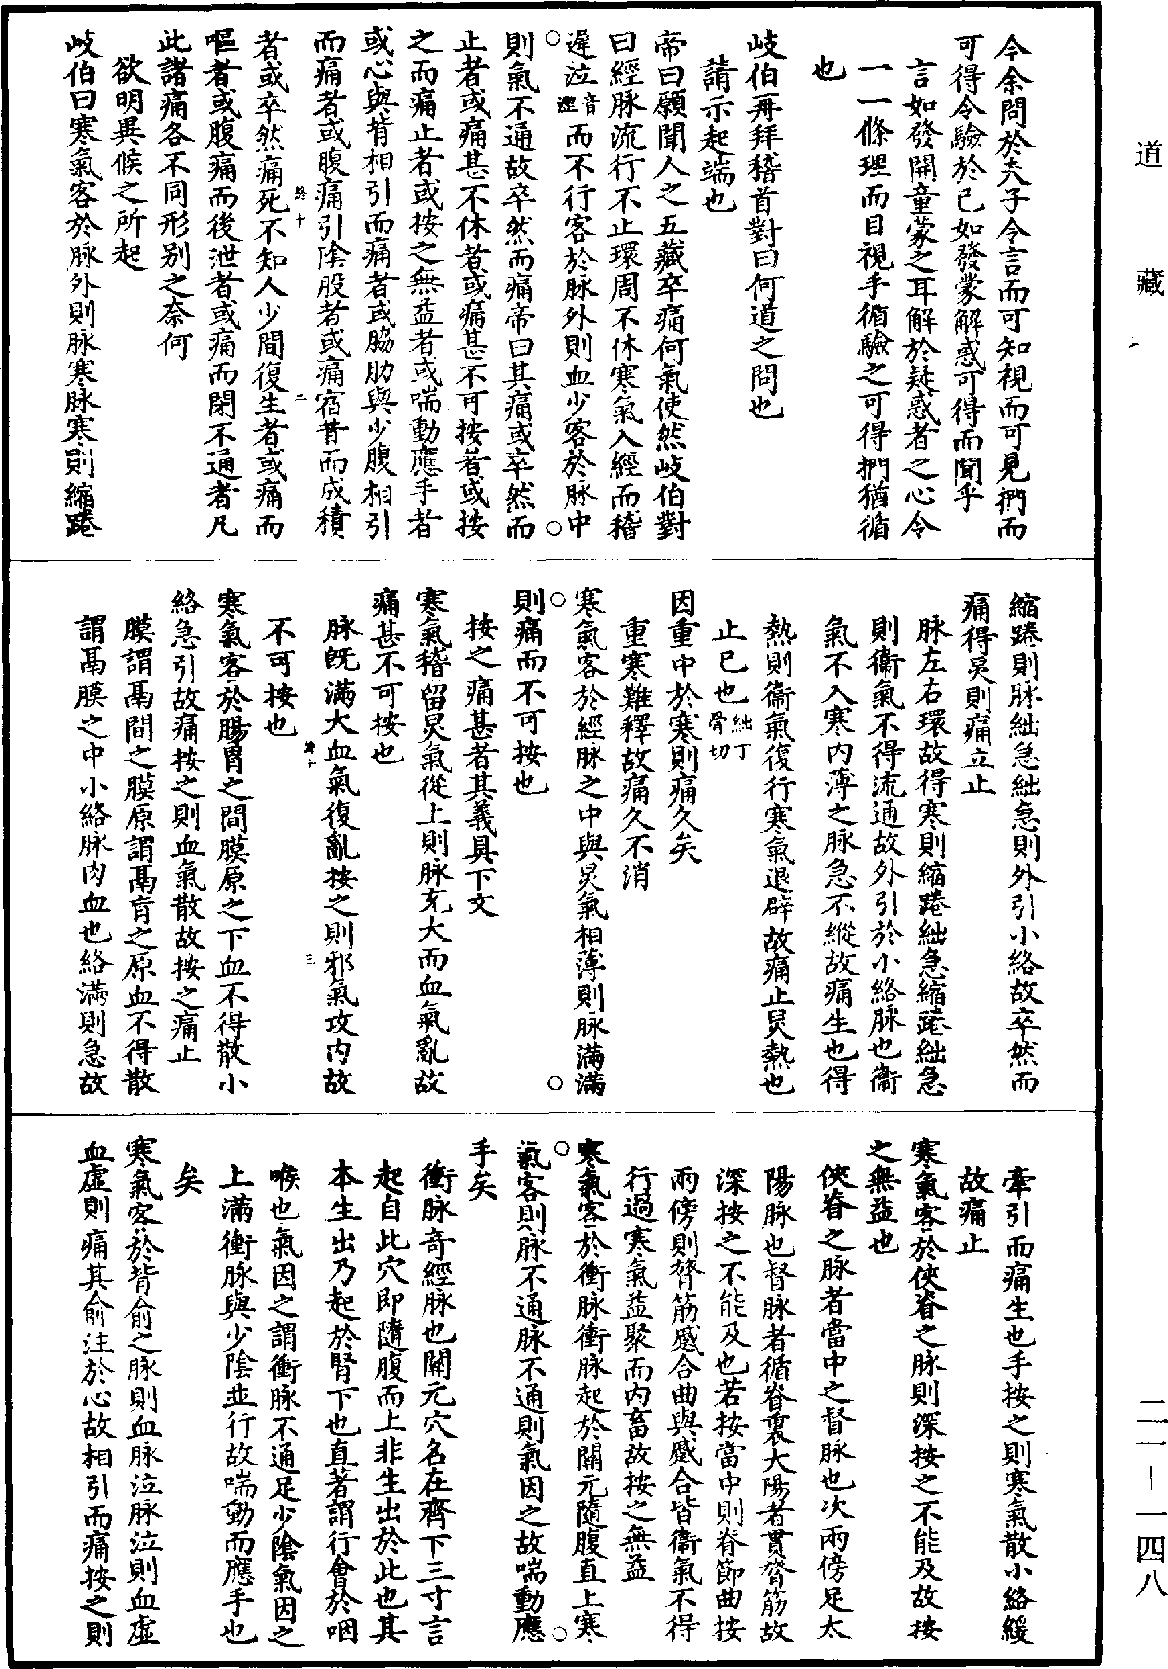 今余問於夫子令言而可知視而可見捫而
可得令驗於已如發蒙解惑可得而聞乎
言如發開童蒙之耳解於疑惑者之心令
一一條理而目視手循驗之可得捫猶循
也
岐伯再拜稽首對曰何道之問也
請示起端也
帝曰願聞人之五藏卒痛何氣使然岐伯對
曰經脉流行不止環周不休寒氣入經而稽
遲泣音澀而不行客於脉外則血少客於脉中
則氣不通故卒然而痛帝曰其痛或卒然而
止者或痛甚不休者或痛甚不可按者或按
之而痛止者或按之無益者或喘動應手者
或心與背相引而痛者或脇肋與少腹相引
而痛者或腹痛引陰股者或痛宿昔而成積
者或卒然痛死不知人少間復生者或痛而
嘔者或腹痛而後泄者或痛而閉不通者凡
此諸痛各不同形别之柰何
欲明異候之所起
岐伯曰寒氣客於脉外則脉寒脉寒則縮踡
縮踡則脉絀急絀急則外引小絡故卒然而
痛得炅則痛立止
脉左右環故得寒則縮踡絀急縮踡絀急
則衛氣不得流通故外引於小絡脉也衛
氣不入寒内薄之脉急不縱故痛生也得
熱則衛氣復行寒氣退辟故痛止炅熱也
止已也絀丁骨切
因重中於寒則痛久矣
重寒難釋故痛久不消
寒氣客於經脉之中與炅氣相薄則脉滿滿
則痛而不可按也
按之痛甚者其義具下文
寒氣稽留炅氣從上則脉充大而血氣亂故
痛甚不可按也
脉既滿大血氣復亂按之則邪氣攻内故
不可按也
寒氣客於腸胃之間膜原之下血不得散小
絡急引故痛按之則血氣散故按之痛止
膜謂鬲間之膜原謂鬲肓之原血不得散
謂鬲膜之中小絡脉内血也絡滿則急故
牽引而痛生也手按之則寒氣散小絡緩
故痛止
寒氣客於俠脊之脉則深按之不能及故按
之無益也
俠脊之脉者當中之督脉也次兩傍足太
陽脉也督脉者循脊裏大陽者貫膂筋故
深按之不能及也若按當中則脊節曲按
兩傍則膂筋感合曲與感合皆衛氣不得
行過寒氣益聚而内畜故按之無益
寒氣客於衝脉衝脉起於關元隨腹直上寒
氣客則脉不通脉不通則氣因之故喘動應
手矣
衝脉奇經脉也關元穴名在臍下三寸言
起自此穴即隨腹而上非生出於此也其
本生出乃起於腎下也直著謂行會於咽
喉也氣因之謂衝脉不通足少陰氣因之
上滿衝脉與少陰並行故喘動而應手也
矣
寒氣客於背俞之脉則血脉泣脉泣則血虛
血虛則痛其俞注於心故相引而痛按之則
道藏
二一－一四八